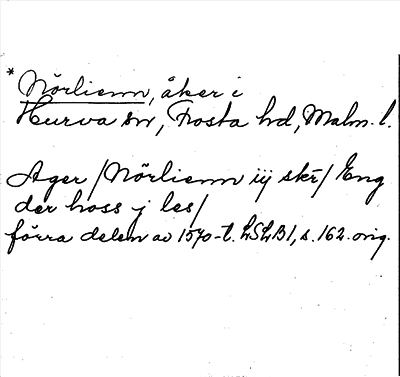 * Nörlienn, åker i
Hurva sn, Frosta hd, Malm. l.
Ager / Nörlienn iij skr̄ / Eng
der hoss j les /
förra delen av 1570-t. LSLB 1, s. 162. orig.